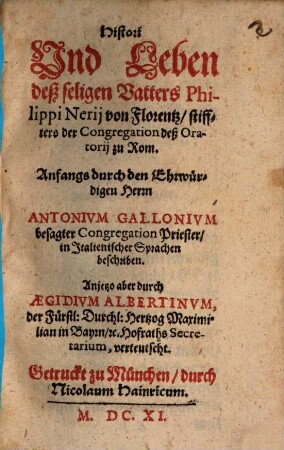 Histori
Vnd Leben
deß seligen Vatters Phi-
lippi Nerij von Florentz/ stiff-
ters der Congregation deß Ora-
torij zu Rom.
Anfangs durch den Ehrwür-
digen Herrn
ANTONIVM GALLONIVM
besagter Congregation Priester/
in Italienischer Sprachen
beschriben.
Anjetzo aber durch
ÆGIDIVM ALBERTINVM,
der Fürstl: Durchl: Hertzog Maximi-
lian in Bayrn/ꝛc. Hofraths Secre-
tarium, verteutscht.
Getruckt zu München/ durch
Nicolaum Hainricum.
M. DC. XI.